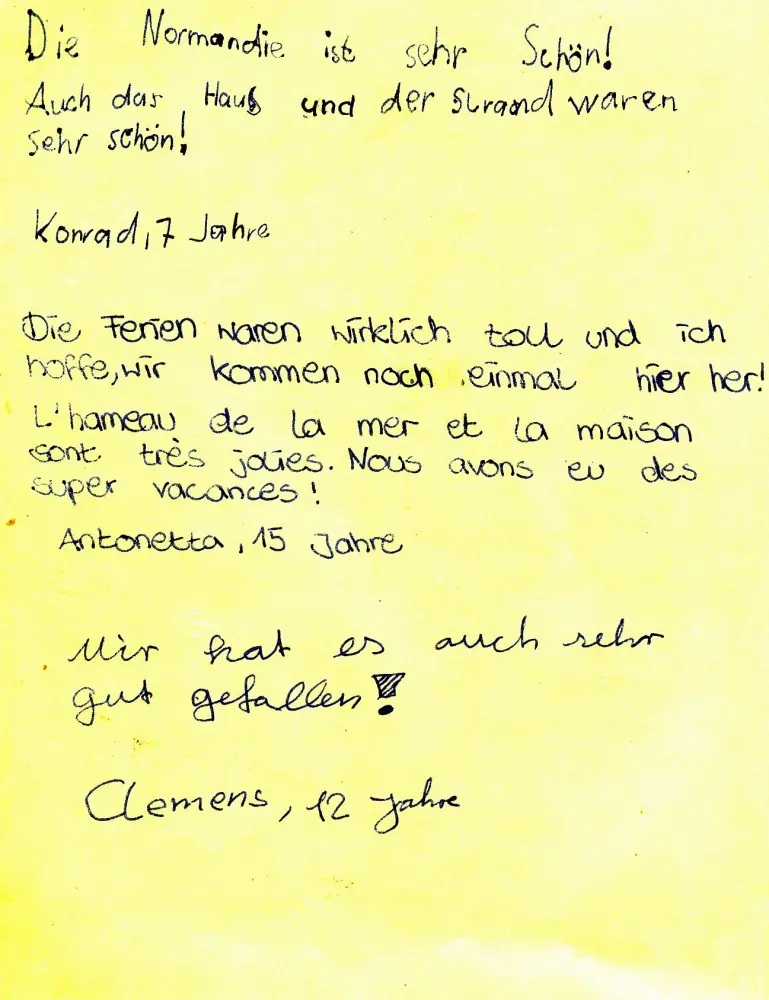 Die Normandie ist sehr Schön!
Auch das Haus und der Strand waren
sehr schön!
Konrad, 7 Jahre
Die Ferien waren wirklich toll und ich
hoffe, wir kommen noch einmal hier her!
L'hameau de la mer et la maison
sont très jolies. Nous avons eu des
super vacances!
Antonetta, 15 Jahre
Mir hat es auch sehr
gut gefallen!
Clemens, 12 Jahre